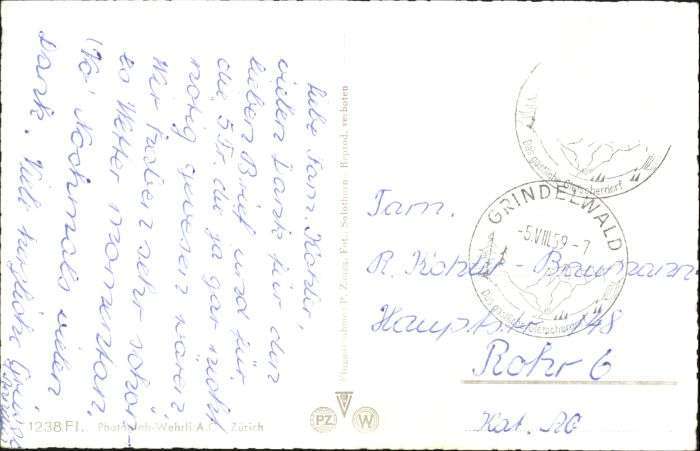 Liebe Fam. Kohler,
vielen Dank für den
lieben Brief und für
die 5 Fr. die ja gar nicht
nötig gewesen wären.
Wir haben sehr schön-
es Wetter momentan.
Nochmals vielen
Dank. Viele herzliche Grüsse
Flugaufnahme P. Zaugg, Fot., Solothurn. Reprod. verboten
GRINDELWALD
-5.VIII.59-7
Das gastliche Gletscherdorf
Das gastliche Gletscherdorf
Fam.
R. Kohler-Baumann
Hauptstr. 148
Rohr 6
Kt. AG
1238 Fl. Photo Wehrli A.G. Zürich
PZ
W